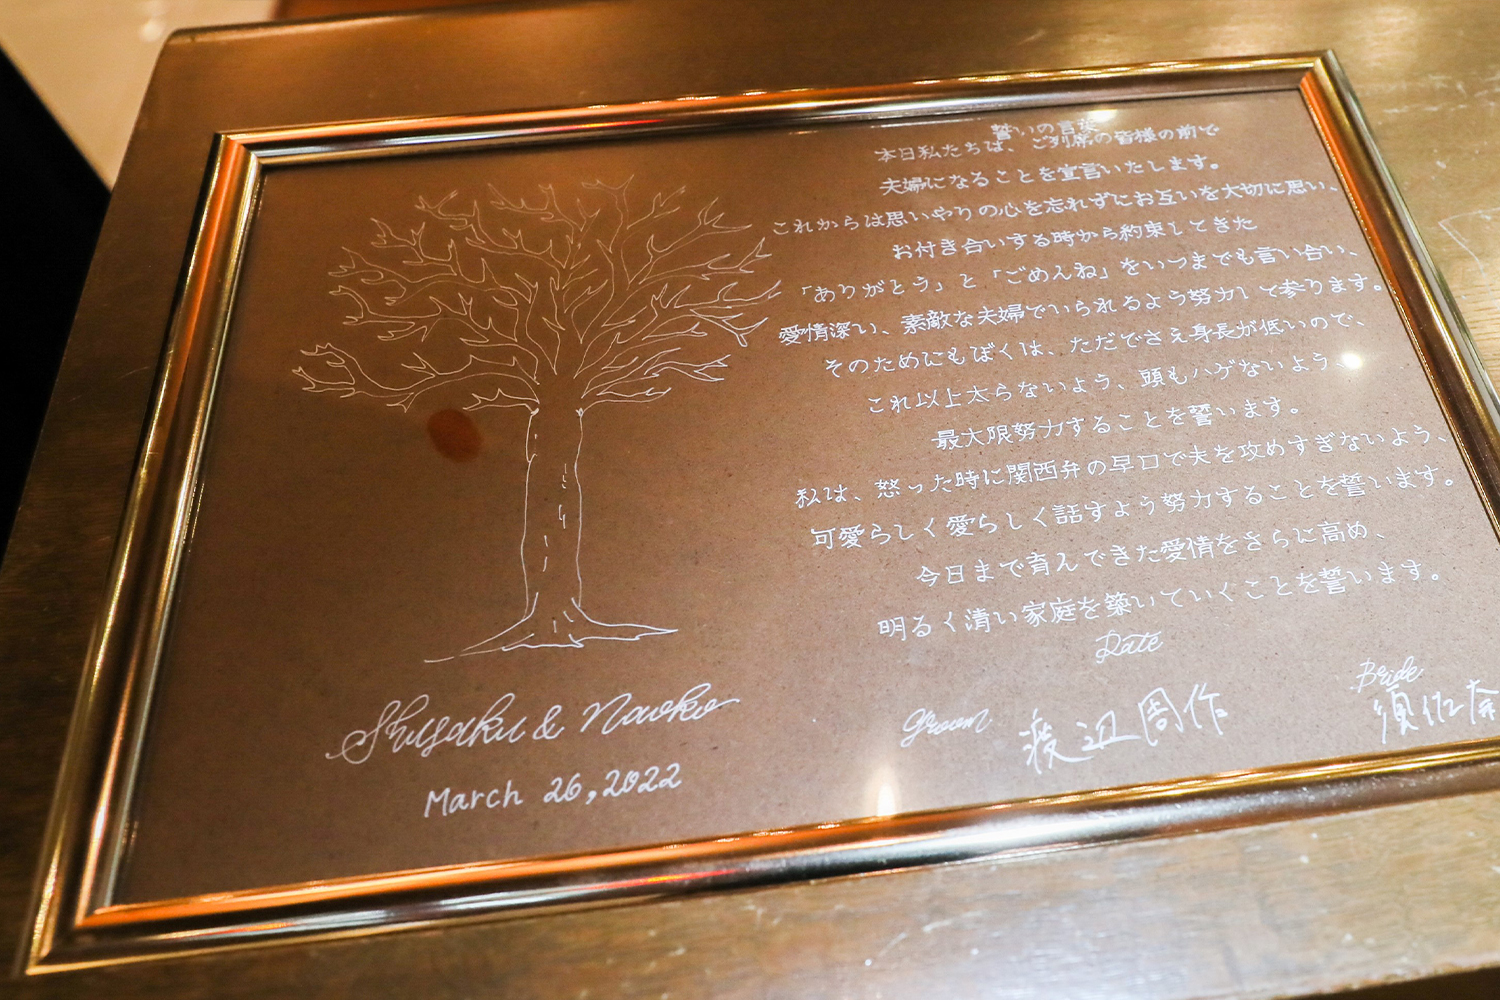 誓いの言葉
本日私たちは、ご列席の皆様の前で
夫婦になることを宣言いたします。
これからは思いやりの心を忘れずにお互いを大切に思い、
お付き合いする時から約束してきた
「ありがとう」と「ごめんね」をいつまでも言い合い、
愛情深い、素敵な夫婦でいられるよう努力して参ります。
そのためにもぼくは、ただでさえ身長が低いので、
これ以上太らないよう、頭もハゲないよう、
最大限努力することを誓います。
私は、怒った時に関西弁の早口で夫を攻めすぎないよう、
可愛らしく愛らしく話すよう努力することを誓います。
今日まで育んできた愛情をさらに高め、
明るく清い家庭を築いていくことを誓います。
Date
Groom 渡辺周作
Bride
須佐奈
Shusaku & Naoko
March 26,2022